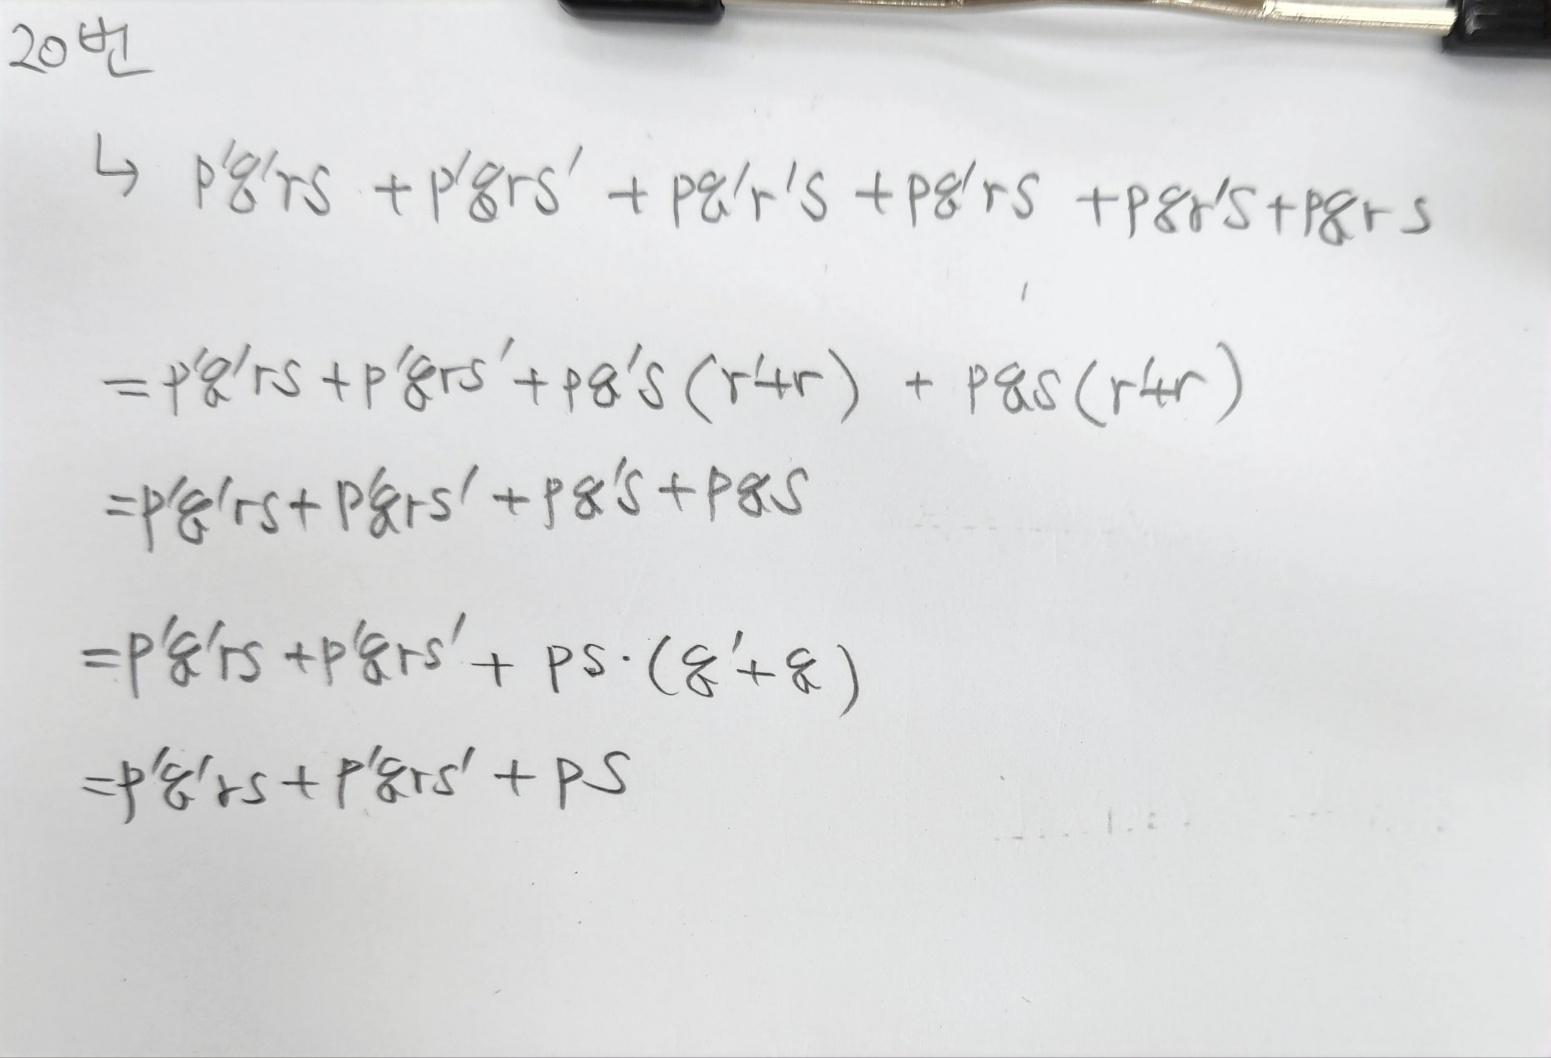 20번
↳ p'q'rs + p'qrs' + pq'r's + pq'rs + pqr's + pqrs
= p'q'rs + p'qrs' + pq's (r'+r) + pqs (r'+r)
= p'q'rs + p'qrs' + pq's + pqs
= p'q'rs + p'qrs' + ps · (q'+q)
= p'q'rs + p'qrs' + ps